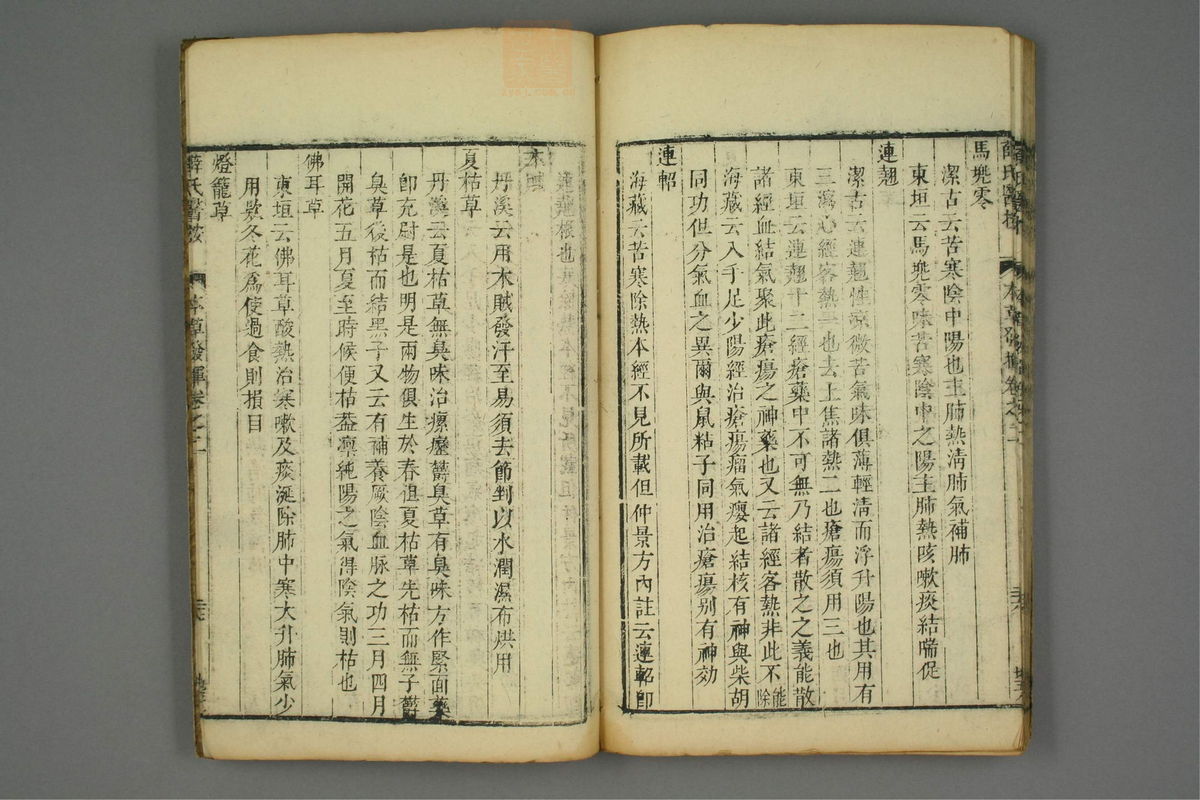 馬兠零
潔古云苦寒陰中陽也主肺熱淸肺氣補肺
東垣云馬兠零味苦寒陰中之陽主肺熱咳嗽痰結喘促
連翹
潔古云連翹性涼微苦氣味俱薄輕淸而浮升陽也其用有
三瀉心經客熱一也去上焦諸熱二也瘡瘍須用三也
東垣云連翹十二經瘡藥中不可無乃結者散之之義能散
諸經血結氣聚此瘡瘍之神藥也又云諸經客熱非此不能除
海藏云入手足少陽經治瘡瘍瘤氣癭起結核有神與柴胡
同功但分氣血之異爾與鼠粘子同用治瘡瘍别有神効
連軺
海藏云苦寒除熱本經不見所載但仲景方內註云連軺卽
連翹根也
木賊
丹溪云用木賊發汗至易須去節剉以水潤濕布烘用
夏枯草
丹溪云夏枯草無臭味治瘰癧欝臭草有臭味方作緊面藥
卽充尉是也明是兩物俱生於春但夏枯草先枯而無子欝
臭草後枯而結黑子又云有補養厥陰血脉之功三月四月
開花五月夏至時候便枯葢禀純陽之氣得陰氣則枯也
佛耳草
東垣云佛耳草酸熱治寒嗽及痰涎除肺中寒大升肺氣少
用欵冬花爲使過食則損目
燈籠草
薛氏醫按
本草發揮卷之二